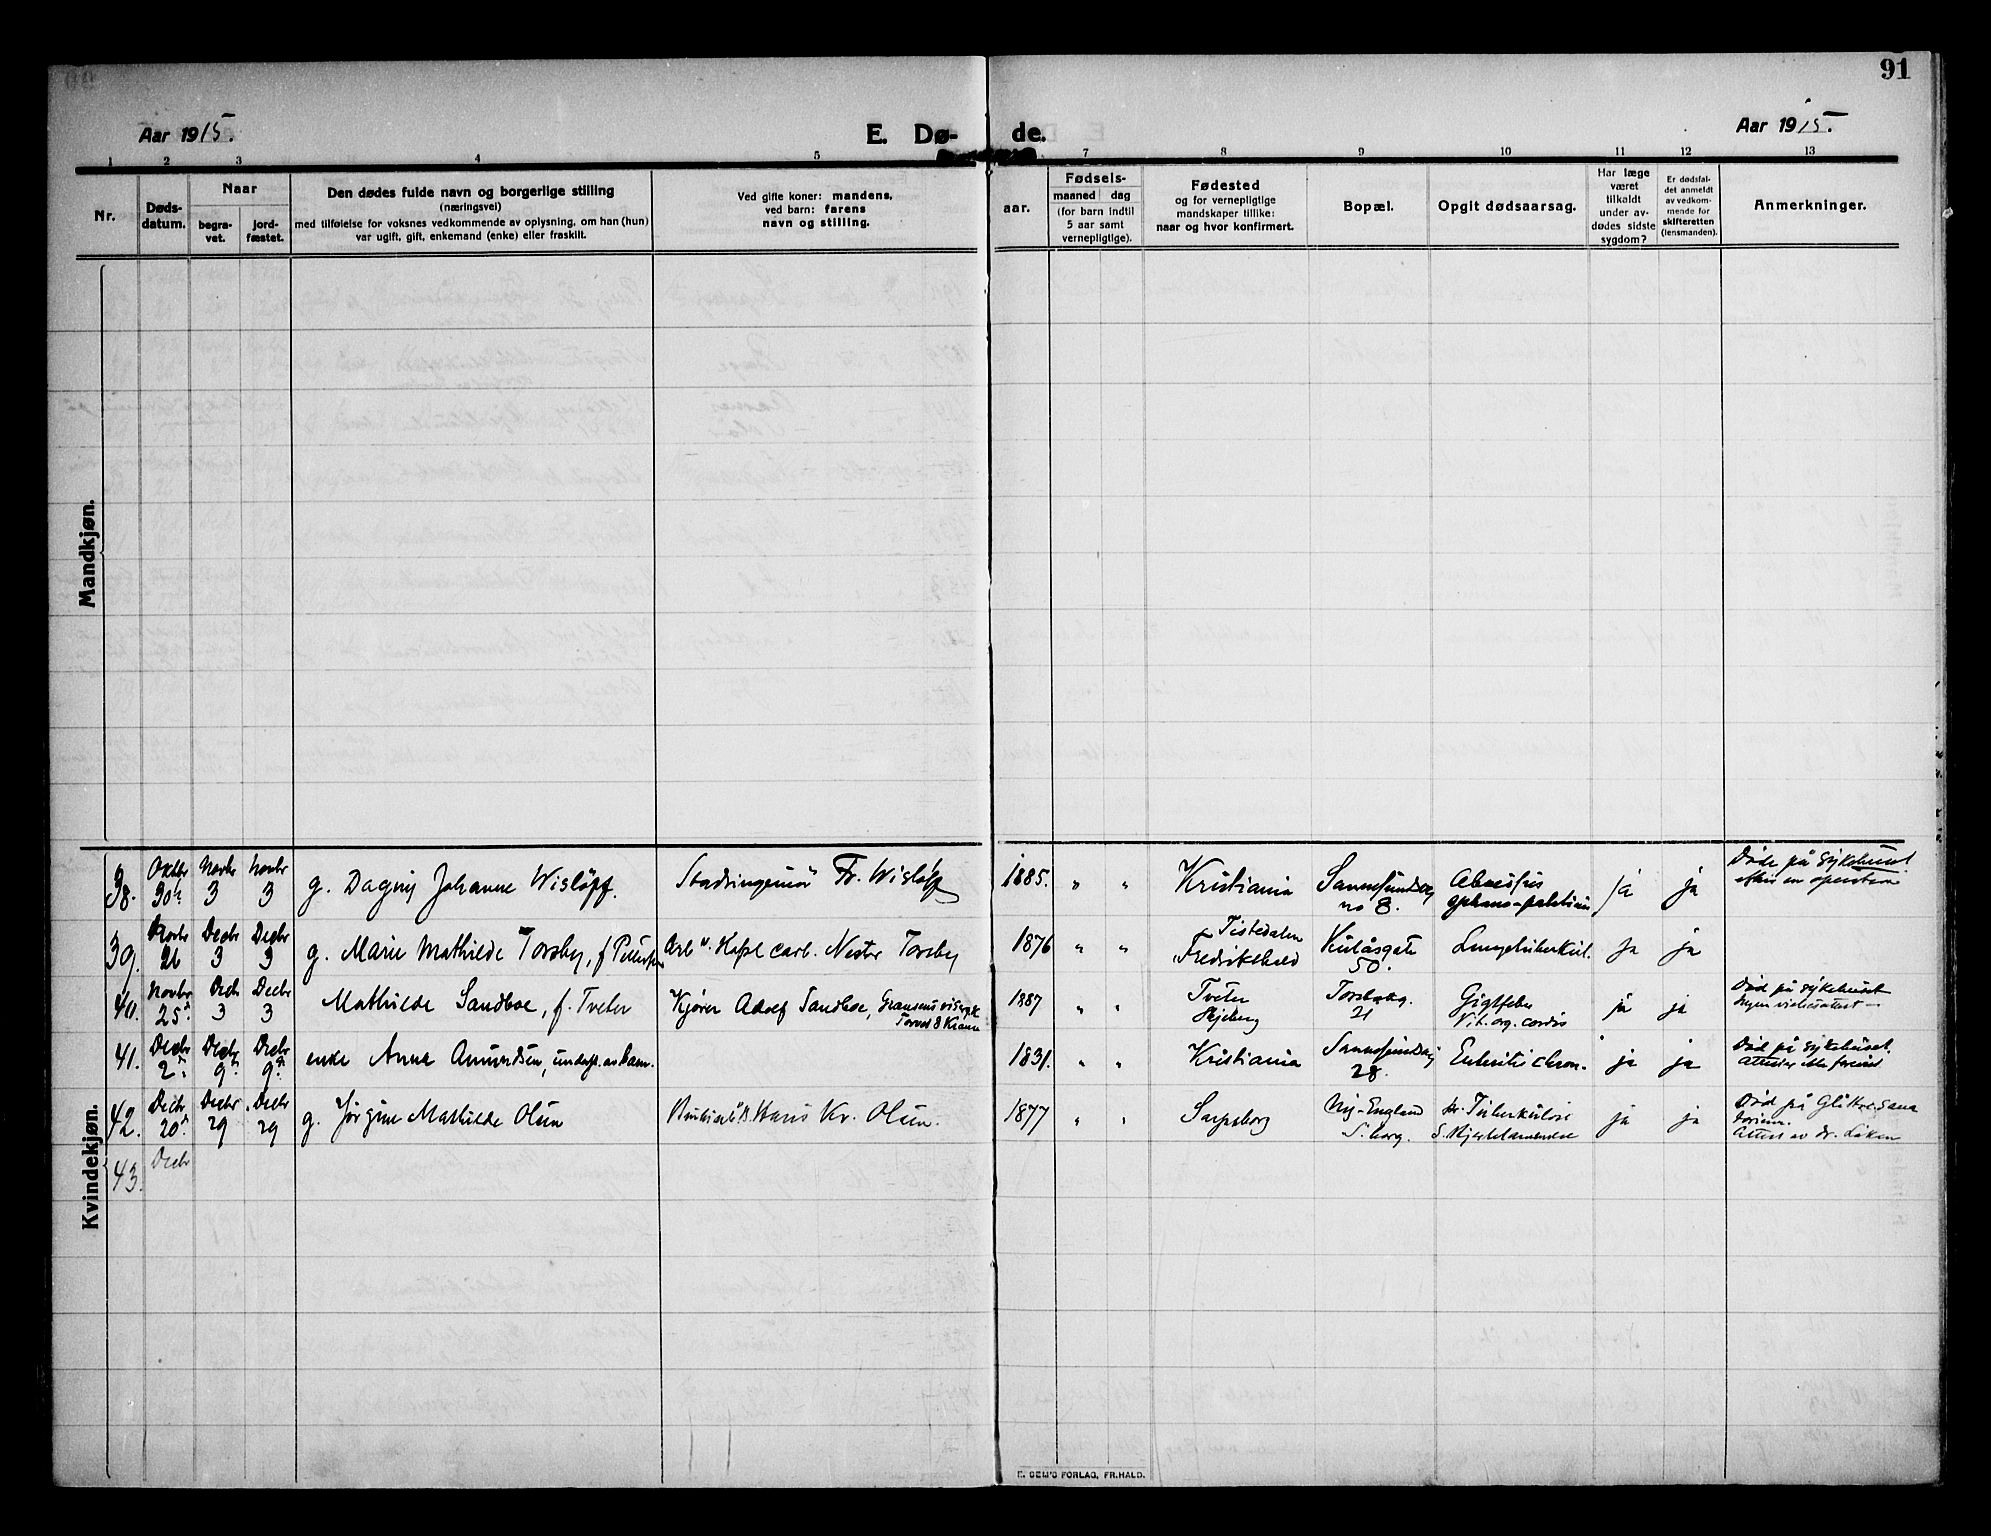 91
Aar 1915.
E. Dø-
de.
Aar 1915.
1 2 3 4 5 7 8 9 10 11 12 13
Nr.
Døds-
datum.
Naar
begra-
vet.
jord-
fæstet.
Den dødes fulde navn og borgerlige stilling
(næringsvei)
med tilføielse for voksnes vedkommende av oplysning, om han (hun)
var ugift, gift, enkemand (enke) eller fraskilt.
Ved gifte koner: mandens,
ved barn: farens
navn og stilling.
aar.
Fødsels-
maaned dag
(for barn indtil
5 aar samt
vernepligtige).
Fødested
og for vernepligtige
mandskaper tillike:
naar og hvor konfirmert.
Bopæl.
Opgit dødsaarsag.
Har læge
været
tilkaldt
under av-
dødes sidste
sygdom?
Er dødsfal-
det anmeldt
av vedkom-
mende for
skifteretten
(lensmanden).
Anmerkninger.
Mandkjøn.
Kvindekjøn.
Oktbr Novbr Novbr
38. 30 3 3 g. Dagny Johanne Wisløff. Stadsingeniør Fr. Wisløff 1885. " " Kristiania Sannesundsvej
no 8.
ja ja
Død på sykehuset
efter en operation
Novbr Decbr Decbr
39. 26 3 3 g. Marie Mathilde Torsby, f Pettersen Carl Nestor Torsby 1876 " " Tistedalen
Fredrikshald
Kulåsgate
50.
Lungetuberkul. ja ja
Novbr Decbr Decbr
40. 25 3 3 Mathilde Sandboe, f. Tveter Kjører Adolf Sandboe, 1887 " " Tveter
Skjeberg
Torsbekg.
21
Gigtfeber
Vit. org. cordis
ja ja
Død på sykehuset
Decbr Decbr Decbr
41. 2 9 9 enke Anna Amundsen, underst. av kom. 1831. " " Kristiania Sannesundsvej
28.
Enteritis chron. ja ja
Død på sykehuset.
Decbr Decbr Decbr
42. 20 29 29 g. Jørgine Mathilde Olsen Hans Kr. Olsen. 1877 " " Sarpsborg Ny-England
S.borg.
Tuberkulose
ja ja
Død på Glitre Sana
torium.
Attest av dr. Løken
43. Decbr
E. SEM'S FORLAG, FR.HALD.